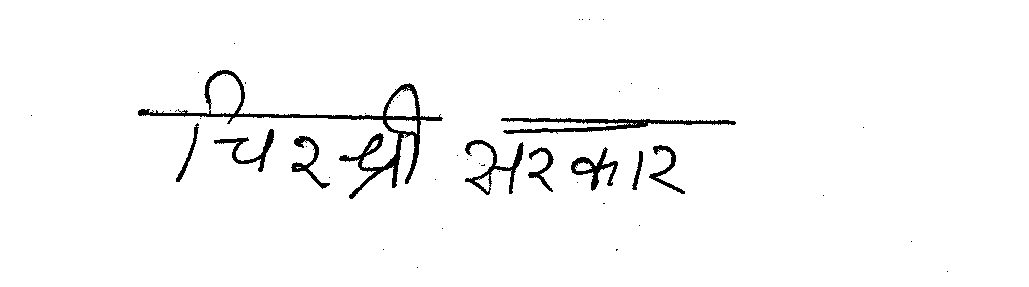 चिरश्री सरकार